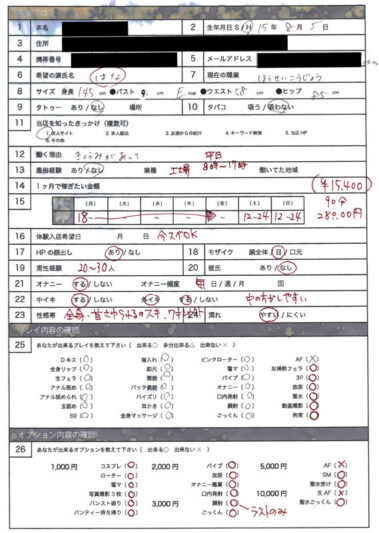 1 本名 2 生年月日 S H 15年 8月 5日
3 住所
4 携帯番号 5 メールアドレス
6 希望の源氏名 はな 7 現在の職業
8 サイズ 身長 145cm ●バスト cm E cup ●ウエスト 58cm ●ヒップ 85cm
9 タトゥー あり/なし 場所 10 タバコ 吸う/吸わない
11 当店を知ったきっかけ(複数可)
1.求人サイト 2.求人雑誌 3.友達からの紹介 4.キーワード検索 5.当店HP
6.その他
12 働く理由 きょうみがあって 平日
13 風俗経験 あり/なし 業種 工場 8時〜17時 働いてた地域
14 1ヶ月で稼ぎたい金額 ¥15,400
15 [月] [火] [水] [木] [金] [土] [日] 90分
18〜 〜 12-24 12-24
16 体験入店希望日 月 日 今スグOK
17 HPの顔出し あり/なし 18 モザイク 顔全体/目/口元
19 男性経験 20〜30人 20 彼氏 あり/なし
21 オナニー する/しない オナニー頻度 毎 日/週/月 回
22 中イキ する/しない 外イキ する/しない 中の方がしやすい
23 性感帯 24 濡れ やすい/にくい
プレイ内容の確認
25 あなたが出来るプレイを教えて下さい( 出来る○ 多分出来る△ 出来ない× )
Dキス( ○ ) 指入れ( ○ ) ピンクローター( ○ ) AF( × )
全身リップ( ○ ) 即尺( ○ ) 電マ( ○ ) お掃除フェラ( ○ )
生フェラ( ○ ) 素股( ○ ) バイブ( ○ ) 3P( ○ )
アナル舐め( ○ ) バック素股( ○ ) オナニー( ○ ) 放尿( ○ )
アナル舐められ( ○ ) パイズリ( ○ ) 口内発射( ○ ) 聖水( ○ )
玉舐め( ○ ) 耳かき( ○ ) 顔射( ○ ) 動画撮影( ○ )
69( ○ ) 全身マッサージ( ○ ) ごっくん( ○ ) 拘束( ○ )
オプション内容の確認
26 あなたが出来るオプションを教えて下さい( 出来る○ 出来ない× )
1,000円 コスプレ( ○ ) 2,000円 バイブ( ○ ) 5,000円 AF( × )
ローター( ○ ) 放尿( ○ ) SM( ○ )
電マ( ○ ) オナニー鑑賞( ○ ) 聖水受け( ○ )
写真撮影3枚( ○ ) 口内発射( ○ ) 10,000円 生AF( × )
パンスト破り( ○ ) 3,000円 顔射( ○ ) 聖水ごっくん( ○ )
パンティー持ち帰り( ○ ) ごっくん( ○ ) ラストのみ